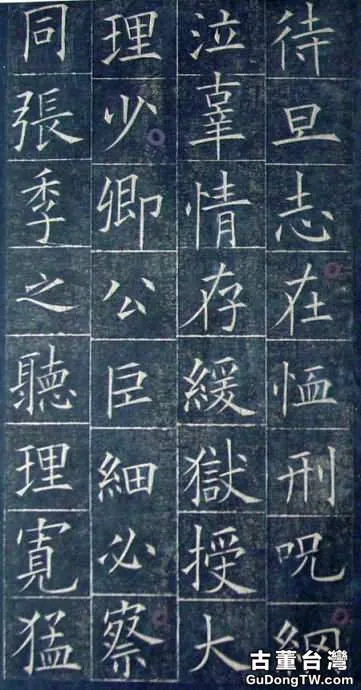 待旦志在恤刑呪網
泣辜情存緩獄授大
理少卿公巨細必察
同張季之聽理寬猛
古董台灣
GuDongTW.com